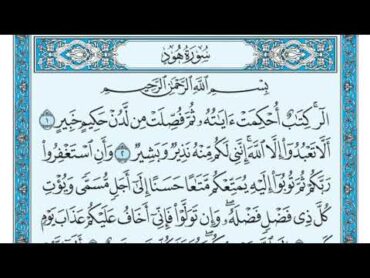 سُورَةُ هُودٍ
بِسْمِ ٱللَّهِ ٱلرَّحْمَٰنِ ٱلرَّحِيمِ
الٓر ۚ كِتَٰبٌ أُحْكِمَتْ ءَايَٰتُهُۥ ثُمَّ فُصِّلَتْ مِن لَّدُنْ حَكِيمٍ خَبِيرٍ ١
أَلَّا تَعْبُدُوٓا۟ إِلَّا ٱللَّهَ ۚ إِنَّنِى لَكُم مِّنْهُ نَذِيرٌ وَبَشِيرٌ ٢ وَأَنِ ٱسْتَغْفِرُوا۟
رَبَّكُمْ ثُمَّ تُوبُوٓا۟ إِلَيْهِ يُمَتِّعْكُم مَّتَٰعًا حَسَنًا إِلَىٰٓ أَجَلٍ مُّسَمًّى وَيُؤْتِ
كُلَّ ذِى فَضْلٍ فَضْلَهُۥ ۖ وَإِن تَوَلَّوْا۟ فَإِنِّىٓ أَخَافُ عَلَيْكُمْ عَذَابَ يَوْمٍ